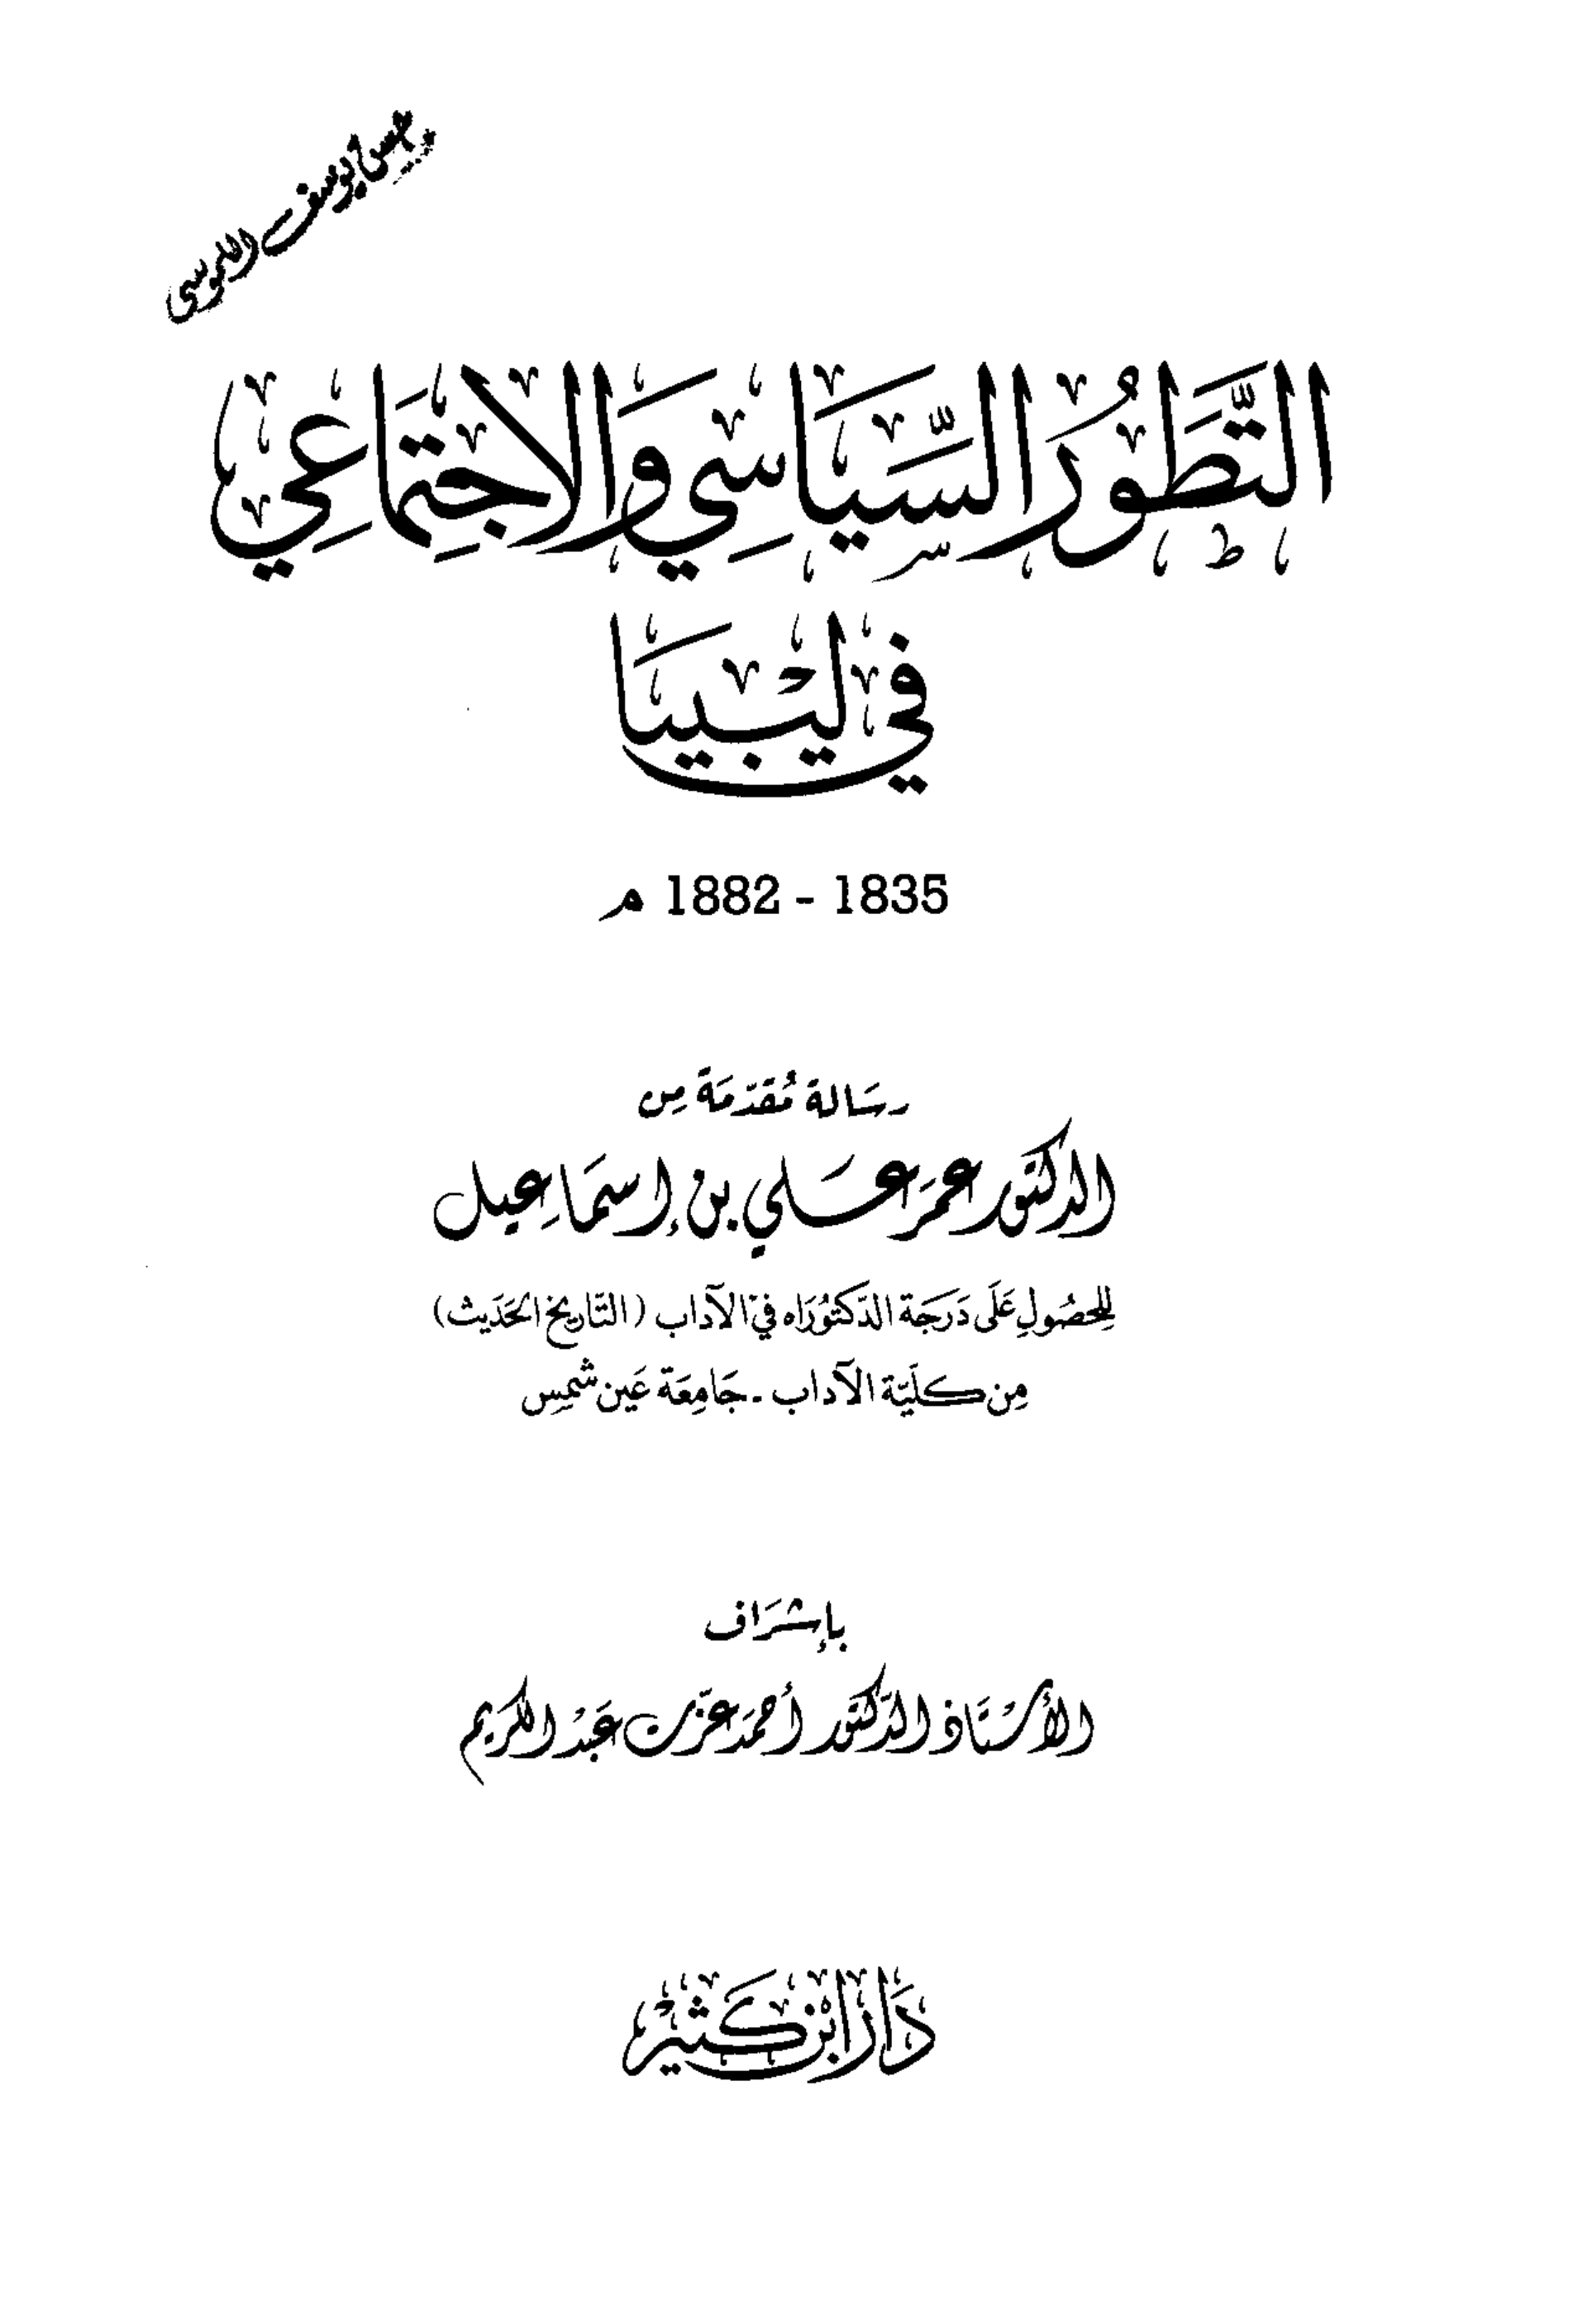 التَّطَوُّرُ السِّيَاسِي وَالاجْتِمَاعِي
في ليبيَا
1835 - 1882 م
رسَالة مُقَدّمَة مِن
الدكتور عمَر عَلي بن إسمَاعِيل
لِلحصُولِ عَلَى دَرَجَة الدّكتُورَاه في الآداب (التّاريخ الحَدَيث)
مِن كليّة الآداب - جَامِعَة عَين شمِس
بإشرَاف
الأسْتَاذ الدّكتور أحمَد عزّت عَبْد الكَريم
دَار ابْن كَثيْر